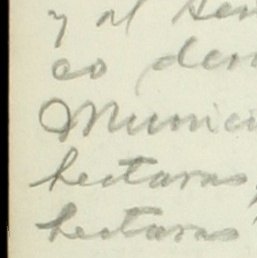 y al ser
co den
Munici
hectaras,
hectaras